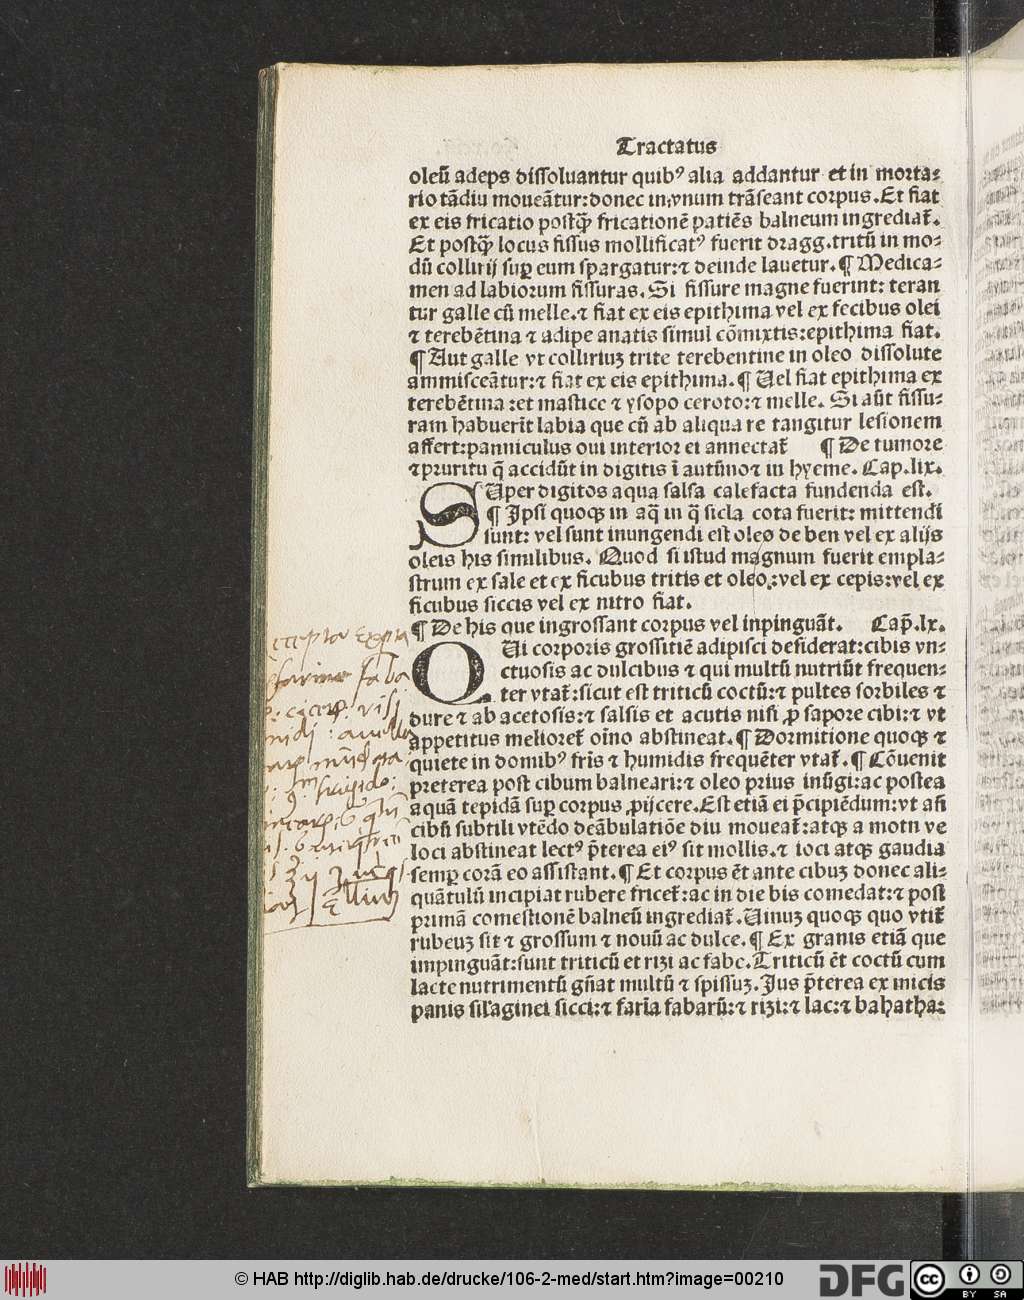 Tractatus
oleū adeps dissoluantur quibꝰ alia addantur et in morta-
rio tādiu moueātur:donec in vnum trāseant corpus.Et fiat
ex eis fricatio postꝙ̄ fricationē patiēs balneum ingrediat᷑.
Et postꝙ̄ locus fissus mollificatꝰ fuerit dragg.tritū in mo-
dū collirij suꝑ eum spargatur:⁊ deinde lauetur.¶ Medica-
men ad labiorum fissuras. Si fissure magne fuerint: teran
tur galle cū melle.⁊ fiat ex eis epithima vel ex fecibus olei
⁊ terebētina ⁊ adipe anatis simul cōmixtis:epithima fiat.
¶ Aut galle vt colliriuꝫ trite terebentine in oleo dissolute
ammisceātur:⁊ fiat ex eis epithima.¶ Uel fiat epithima ex
terebētina:et mastice ⁊ ysopo ceroto:⁊ melle. Si aūt fissu-
ram habuerīt labia que cū ab aliqua re tangitur lesionem
affert:panniculus oui interior ei annectat᷑ ¶ De tumore
⁊pruritu q̄ accidūt in digitis ī autūno⁊ in hyeme. Cap.lix.
SUper digitos aqua salsa calefacta fundenda est.
¶ Ipsi quoqꝫ in aq̄ in q̄ sicla cota fuerit: mittendi
sunt: vel sunt inungendi est oleo de ben vel ex alijs
oleis his similibus. Quod si istud magnum fuerit empla-
strum ex sale et ex ficubus tritis et oleo:vel ex cepis:vel ex
ficubus siccis vel ex nitro fiat.
¶ De his que ingrossant corpus vel inpinguāt. Cap̄.lx.
QUi corporis grossitiē adipisci desiderat:cibis vn-
ctuosis ac dulcibus ⁊ qui multū nutriūt frequen-
ter vtat᷑:sicut est triticū coctū:⁊ pultes sorbiles ⁊
dure ⁊ ab acetosis:⁊ salsis et acutis nisi ꝓ sapore cibi:⁊ vt
appetitus melioret᷑ oīno abstineat.¶ Dormitione quoqꝫ ⁊
quiete in domibꝰ fri̅s ⁊ humidis frequēter vtat᷑.¶ Cōuenit
preterea post cibum balneari:⁊ oleo prius inūgi:ac postea
aquā tepidā suꝑ corpus ꝓijcere.Est etiā ei p̄cipiēdum:vt an̄
cibū subtili vtēdo deābulatiōe diu moueat᷑:atqꝫ a motn ve
loci abstineat lectꝰ p̄terea eiꝰ sit mollis.⁊ ioci atqꝫ gaudia
semꝑ corā eo assistant.¶ Et corpus ēt ante cibuꝫ donec ali-
quātulū incipiat rubere fricet᷑:ac in die bis comedat:⁊ post
primā comestionē balneū ingrediat᷑.Uinuꝫ quoqꝫ quo vtit᷑
rubeuꝫ sit ⁊ grossum ⁊ nouū ac dulce.¶ Ex granis etiā que
impinguāt:sunt triticū et rizi ac fabe.Triticū ēt coctū cum
lacte nutrimentū gn̄at multū ⁊ spissuꝫ.Ius p̄terea ex micis
panis silaginei sicci:⁊ farīa fabarū:⁊ rizi:⁊ lac:⁊ bahatha:
farine faba
© HAB http://diglib.hab.de/drucke/106-2-med/start.htm?image=00210
DFG
cc
BY SA